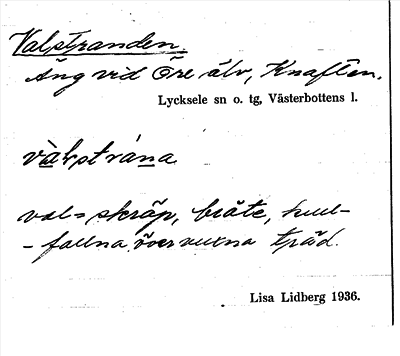 Valstranden.
Äng vid Öre älv, Knaften.
Lycksele sn o. tg, Västerbottens l.
val = skräp, bråte, kull-
- fallna övervuxna träd.
Lisa Lidberg 1936.